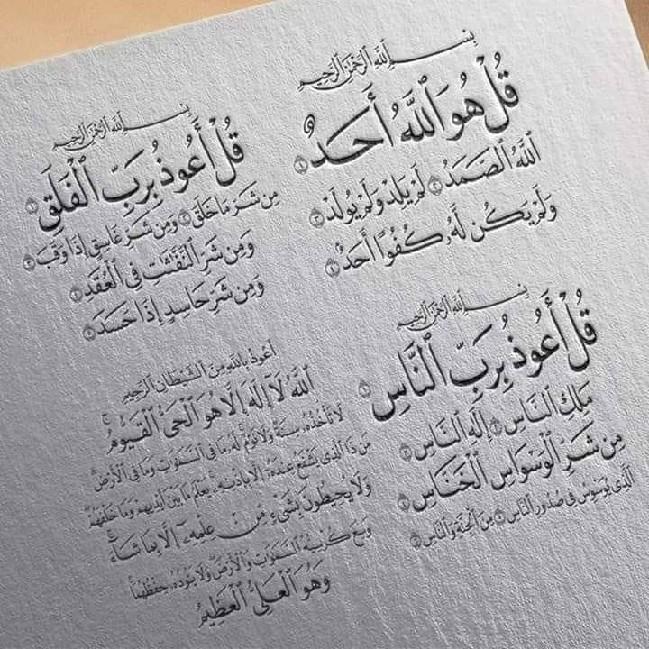 بِسْمِ ٱللَّهِ ٱلرَّحْمَٰنِ ٱلرَّحِيمِ
قُلْ هُوَ ٱللَّهُ أَحَدٌ ١
ٱللَّهُ ٱلصَّمَدُ ٢ لَمْ يَلِدْ وَلَمْ يُولَدْ ٣
وَلَمْ يَكُن لَّهُۥ كُفُوًا أَحَدٌۢ ٤
بِسْمِ ٱللَّهِ ٱلرَّحْمَٰنِ ٱلرَّحِيمِ
قُلْ أَعُوذُ بِرَبِّ ٱلْفَلَقِ ١
مِن شَرِّ مَا خَلَقَ ٢ وَمِن شَرِّ غَاسِقٍ إِذَا وَقَبَ ٣
وَمِن شَرِّ ٱلنَّفَّٰثَٰتِ فِى ٱلْعُقَدِ ٤
وَمِن شَرِّ حَاسِدٍ إِذَا حَسَدَ ٥
بِسْمِ ٱللَّهِ ٱلرَّحْمَٰنِ ٱلرَّحِيمِ
قُلْ أَعُوذُ بِرَبِّ ٱلنَّاسِ ١
مَلِكِ ٱلنَّاسِ ٢ إِلَٰهِ ٱلنَّاسِ ٣
مِن شَرِّ ٱلْوَسْوَاسِ ٱلْخَنَّاسِ ٤
ٱلَّذِى يُوَسْوِسُ فِى صُدُورِ ٱلنَّاسِ ٥ مِنَ ٱلْجِنَّةِ وَٱلنَّاسِ ٦
أعوذ بالله من الشيطان الرجيم
ٱللَّهُ لَآ إِلَٰهَ إِلَّا هُوَ ٱلْحَىُّ ٱلْقَيُّومُ ۚ
لَا تَأْخُذُهُۥ سِنَةٌ وَلَا نَوْمٌ ۚ لَّهُۥ مَا فِى ٱلسَّمَٰوَٰتِ وَمَا فِى ٱلْأَرْضِ ۗ
مَن ذَا ٱلَّذِى يَشْفَعُ عِندَهُۥٓ إِلَّا بِإِذْنِهِۦ ۚ يَعْلَمُ مَا بَيْنَ أَيْدِيهِمْ وَمَا خَلْفَهُمْ ۖ
وَلَا يُحِيطُونَ بِشَىْءٍ مِّنْ عِلْمِهِۦٓ إِلَّا بِمَا شَآءَ ۚ
وَسِعَ كُرْسِيُّهُ ٱلسَّمَٰوَٰتِ وَٱلْأَرْضَ ۖ وَلَا يَـُٔودُهُۥ حِفْظُهُمَا ۚ
وَهُوَ ٱلْعَلِىُّ ٱلْعَظِيمُ